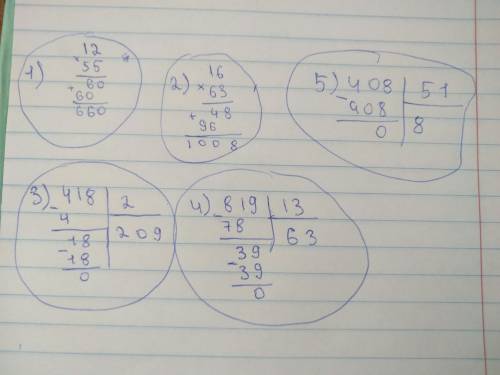 1) 12
× 55
60
+ 60
660
2) 16
× 63
+ 48
96
1008
5) 408 | 51
- 408 | 8
0
3) - 418 | 2
4 | 209
- 18
18
0
4) - 819 | 13
78 | 63
- 39
39
0